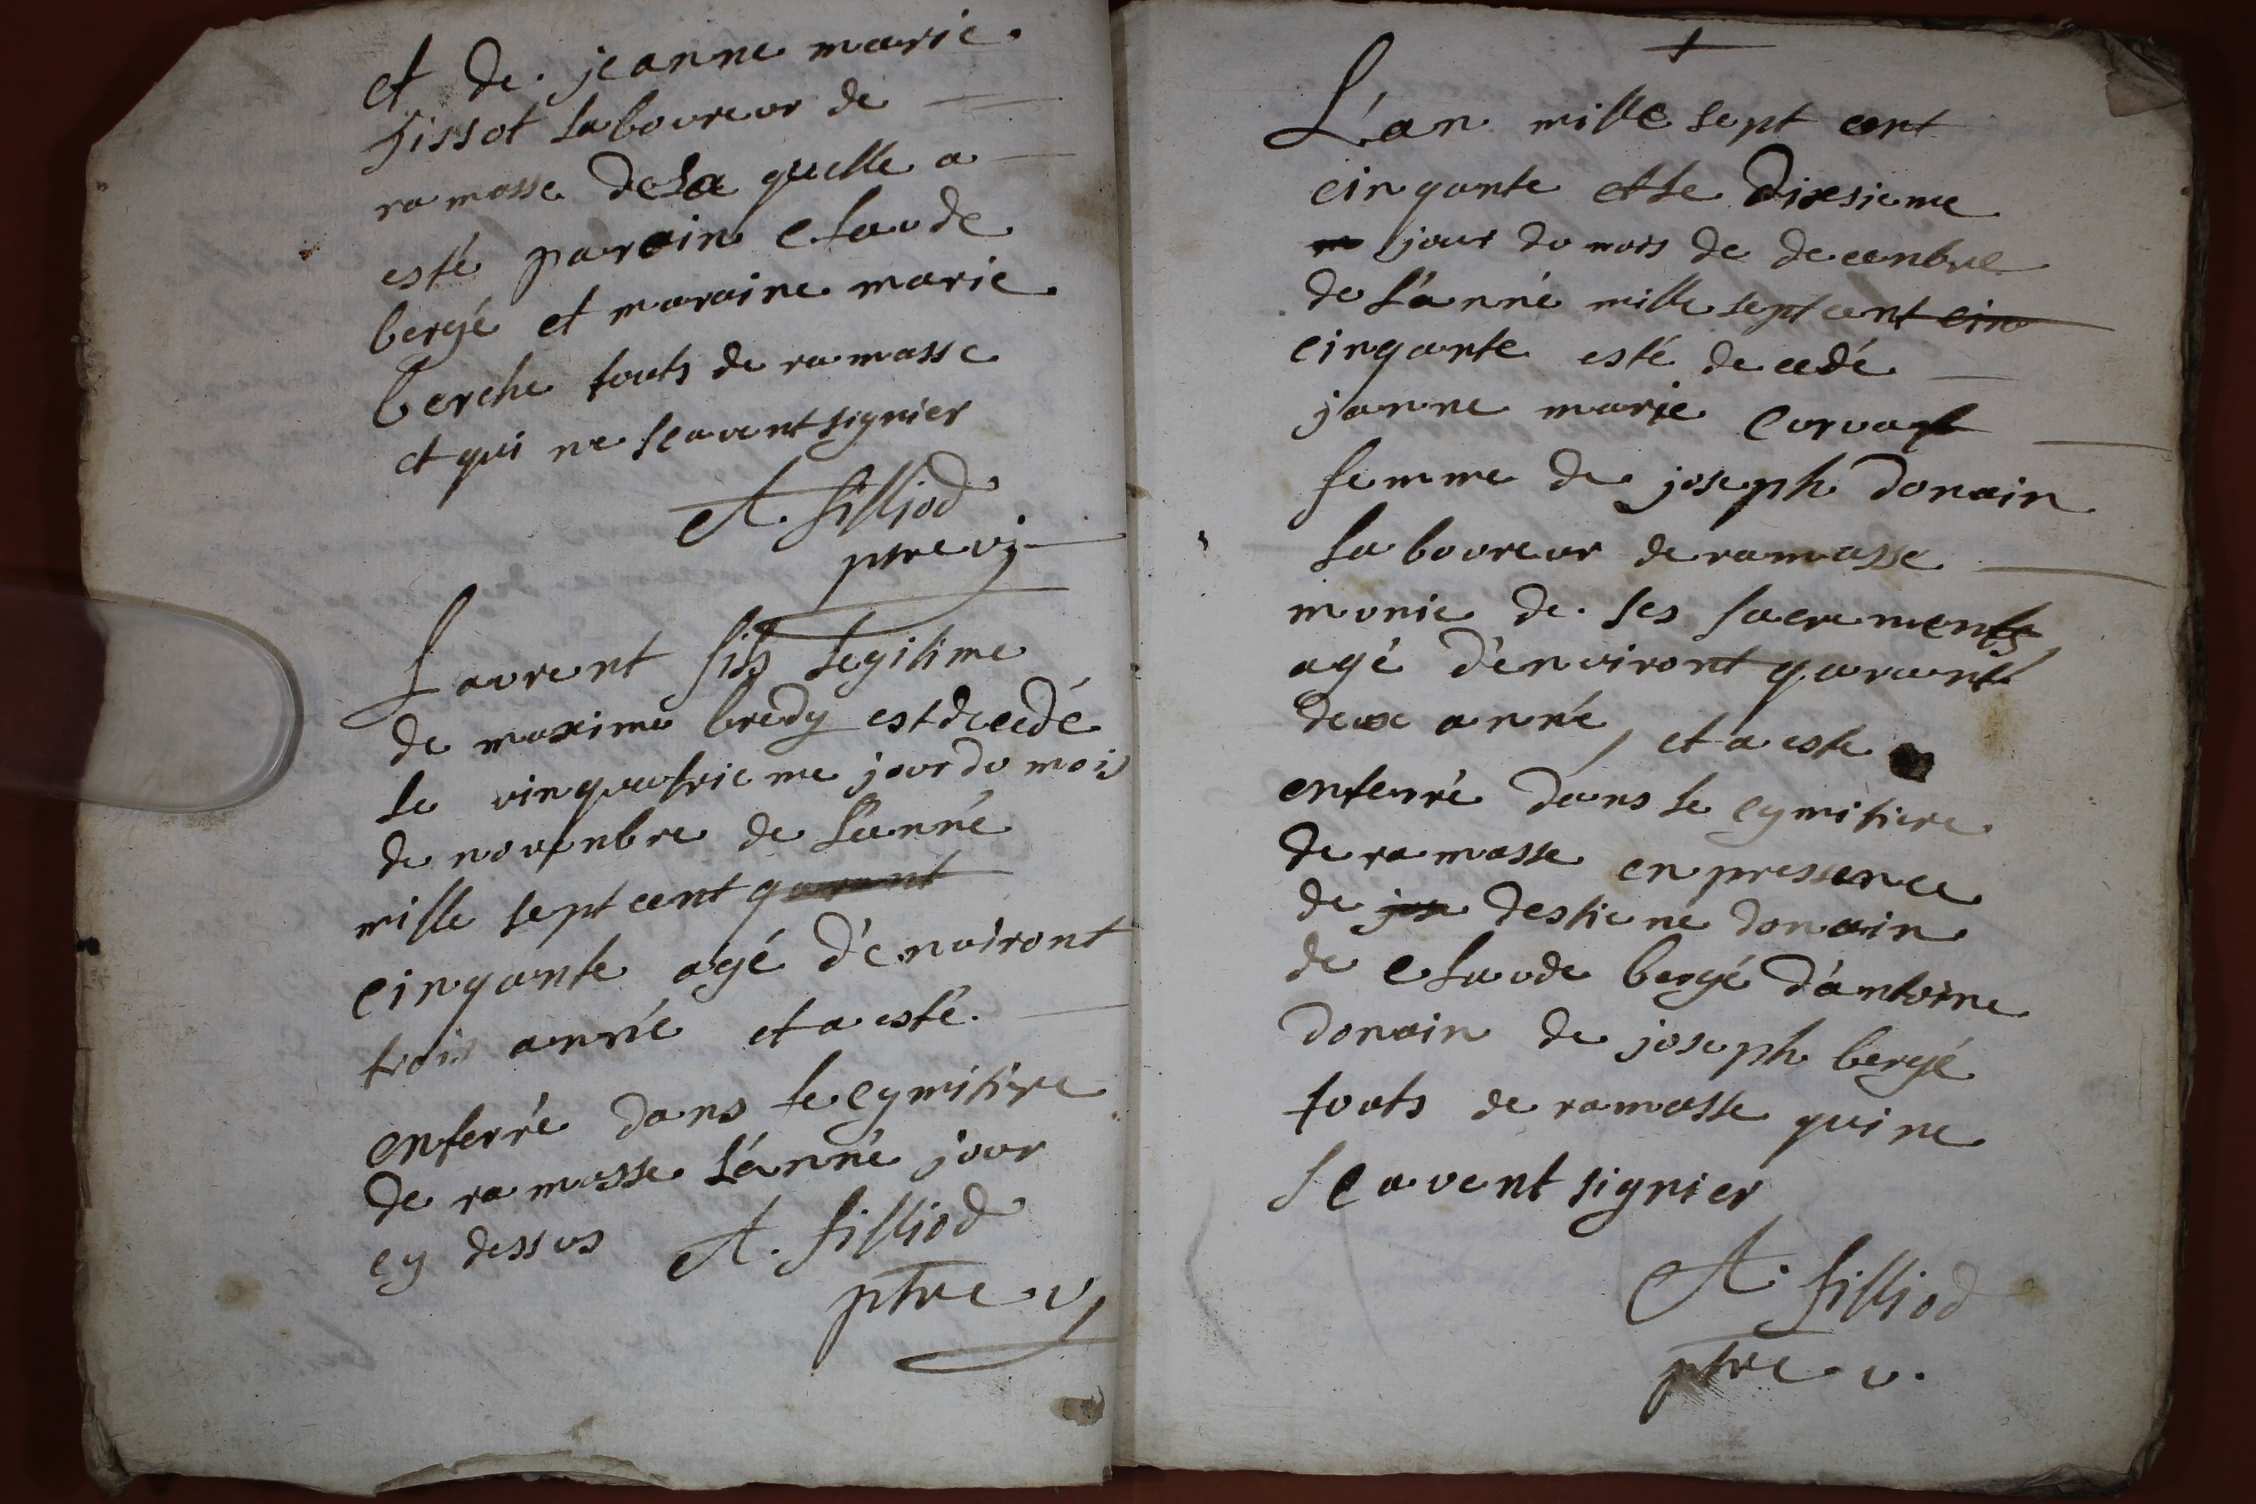 et de jeanne marie
fissot laboureur de
ramasse de la quelle a
esté parain claude
bergé et maraine marie
berche touts de ramasse
et qui ne scavent signier
A. filliod
ptre vj
Laurent fils legitime
de maxime bredy est decedé
le vinquatrieme jour du mois
de novenbre de l'anné
mille sept cent quarant
cinqante agé d'environt
trois anné et a esté
enterré dans le cymitiere
de ramasse l'anné jour
cy dessus A. filliod
ptre v
L'an mille sept cent
cinqante et le dixesieme
jour du mois de decenbre
de l'anné mille sept cent cin
cinqante esté decedé
janne marie
femme de joseph donain
laboureur de ramasse
munie de ses sacrements
agé d'environt quarante
deux anné, et a esté
enterré dans le cymitiere
de ramasse en pressence
de jos d'estiene donain
de claude bergé d'antoine
donain de joseph bergé
touts de ramasse qui ne
scavent signier
A. filliod
ptre v.